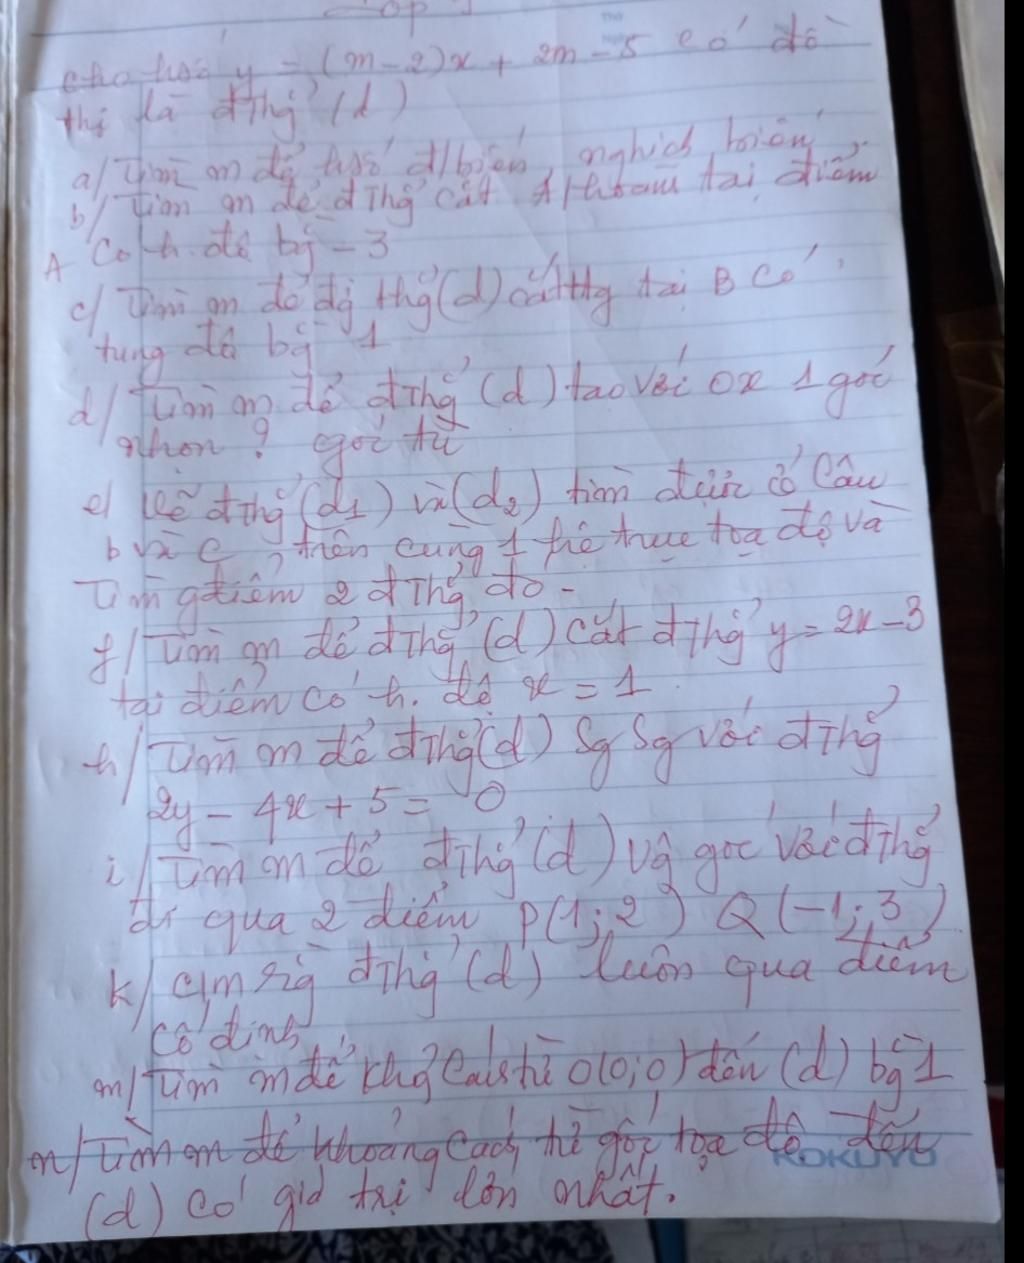 Lớp
cho hsố y = (m-2)x + 2m - 5 có đồ
thị là đThg (d)
a/ Tìm m để hsố đ/biến, nghịch biến
b/ Tìm m để đThg cắt t/hoành tại điểm
A Có h. độ bg - 3
c/ Tìm m để đg thg (d) cắt ttg tại B Có
tung độ bg 1
d/ Tìm m để đThg (d) tạo với Ox 1 góc
nhọn ? góc tù
e/ Vẽ đThg (d1) và (d2) tìm được ở Câu
b và c, trên cùng 1 hệ trục tọa độ và
Tìm gđiểm 2 đThg đó -
f/ Tìm m để đThg (d) Cắt đThg y = 2x - 3
tại điểm Có h. độ x = 1
h/ Tìm m để đThg (d) Sg Sg với đThg
2y - 4x + 5 = 0
i/ Tìm m để đThg (d) Vg góc với đThg
đi qua 2 điểm P(1; 2) Q(-1; 3)
k/ C/m rg đThg (d) luôn qua điểm
Cố định
m/ Tìm m để Khg Cách từ O(0; 0) đến (d) bg 1
n/ Tìm m để khoảng Cách từ gốc tọa độ đến
KOKUYO
(d) Có giá trị lớn nhất.